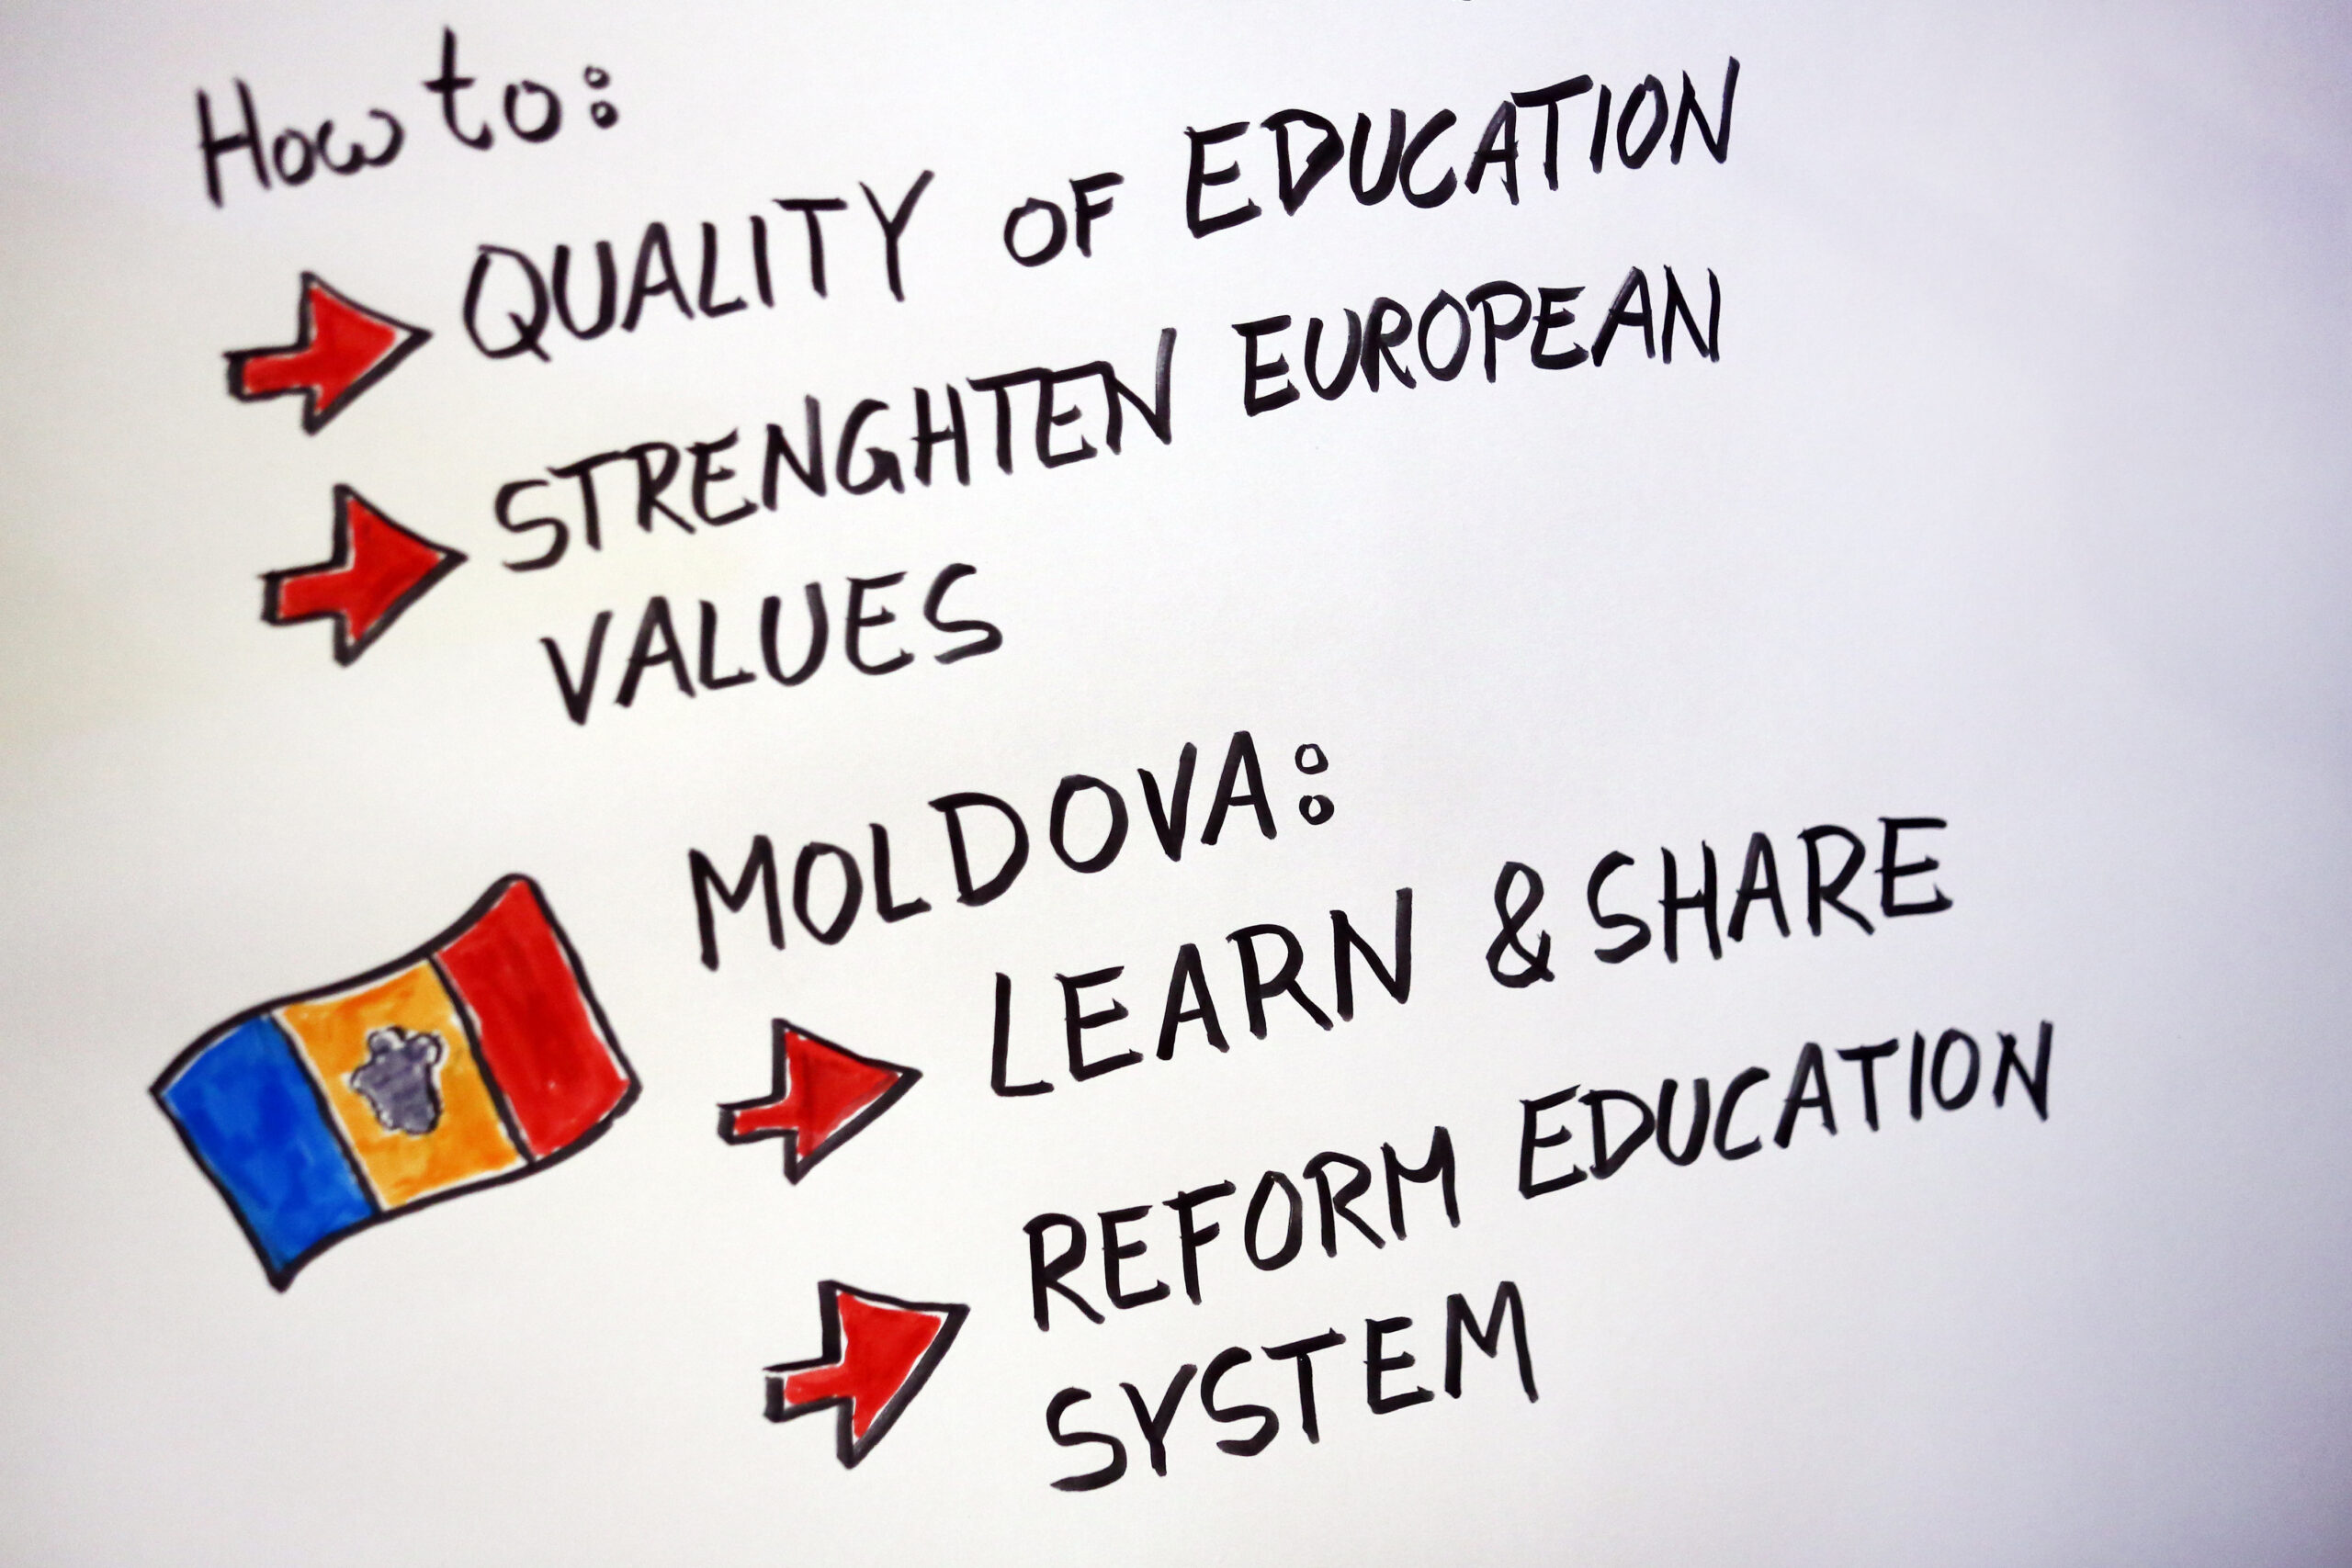 How to:
QUALITY OF EDUCATION
STRENGHTEN EUROPEAN
VALUES
MOLDOVA:
LEARN & SHARE
REFORM EDUCATION
SYSTEM